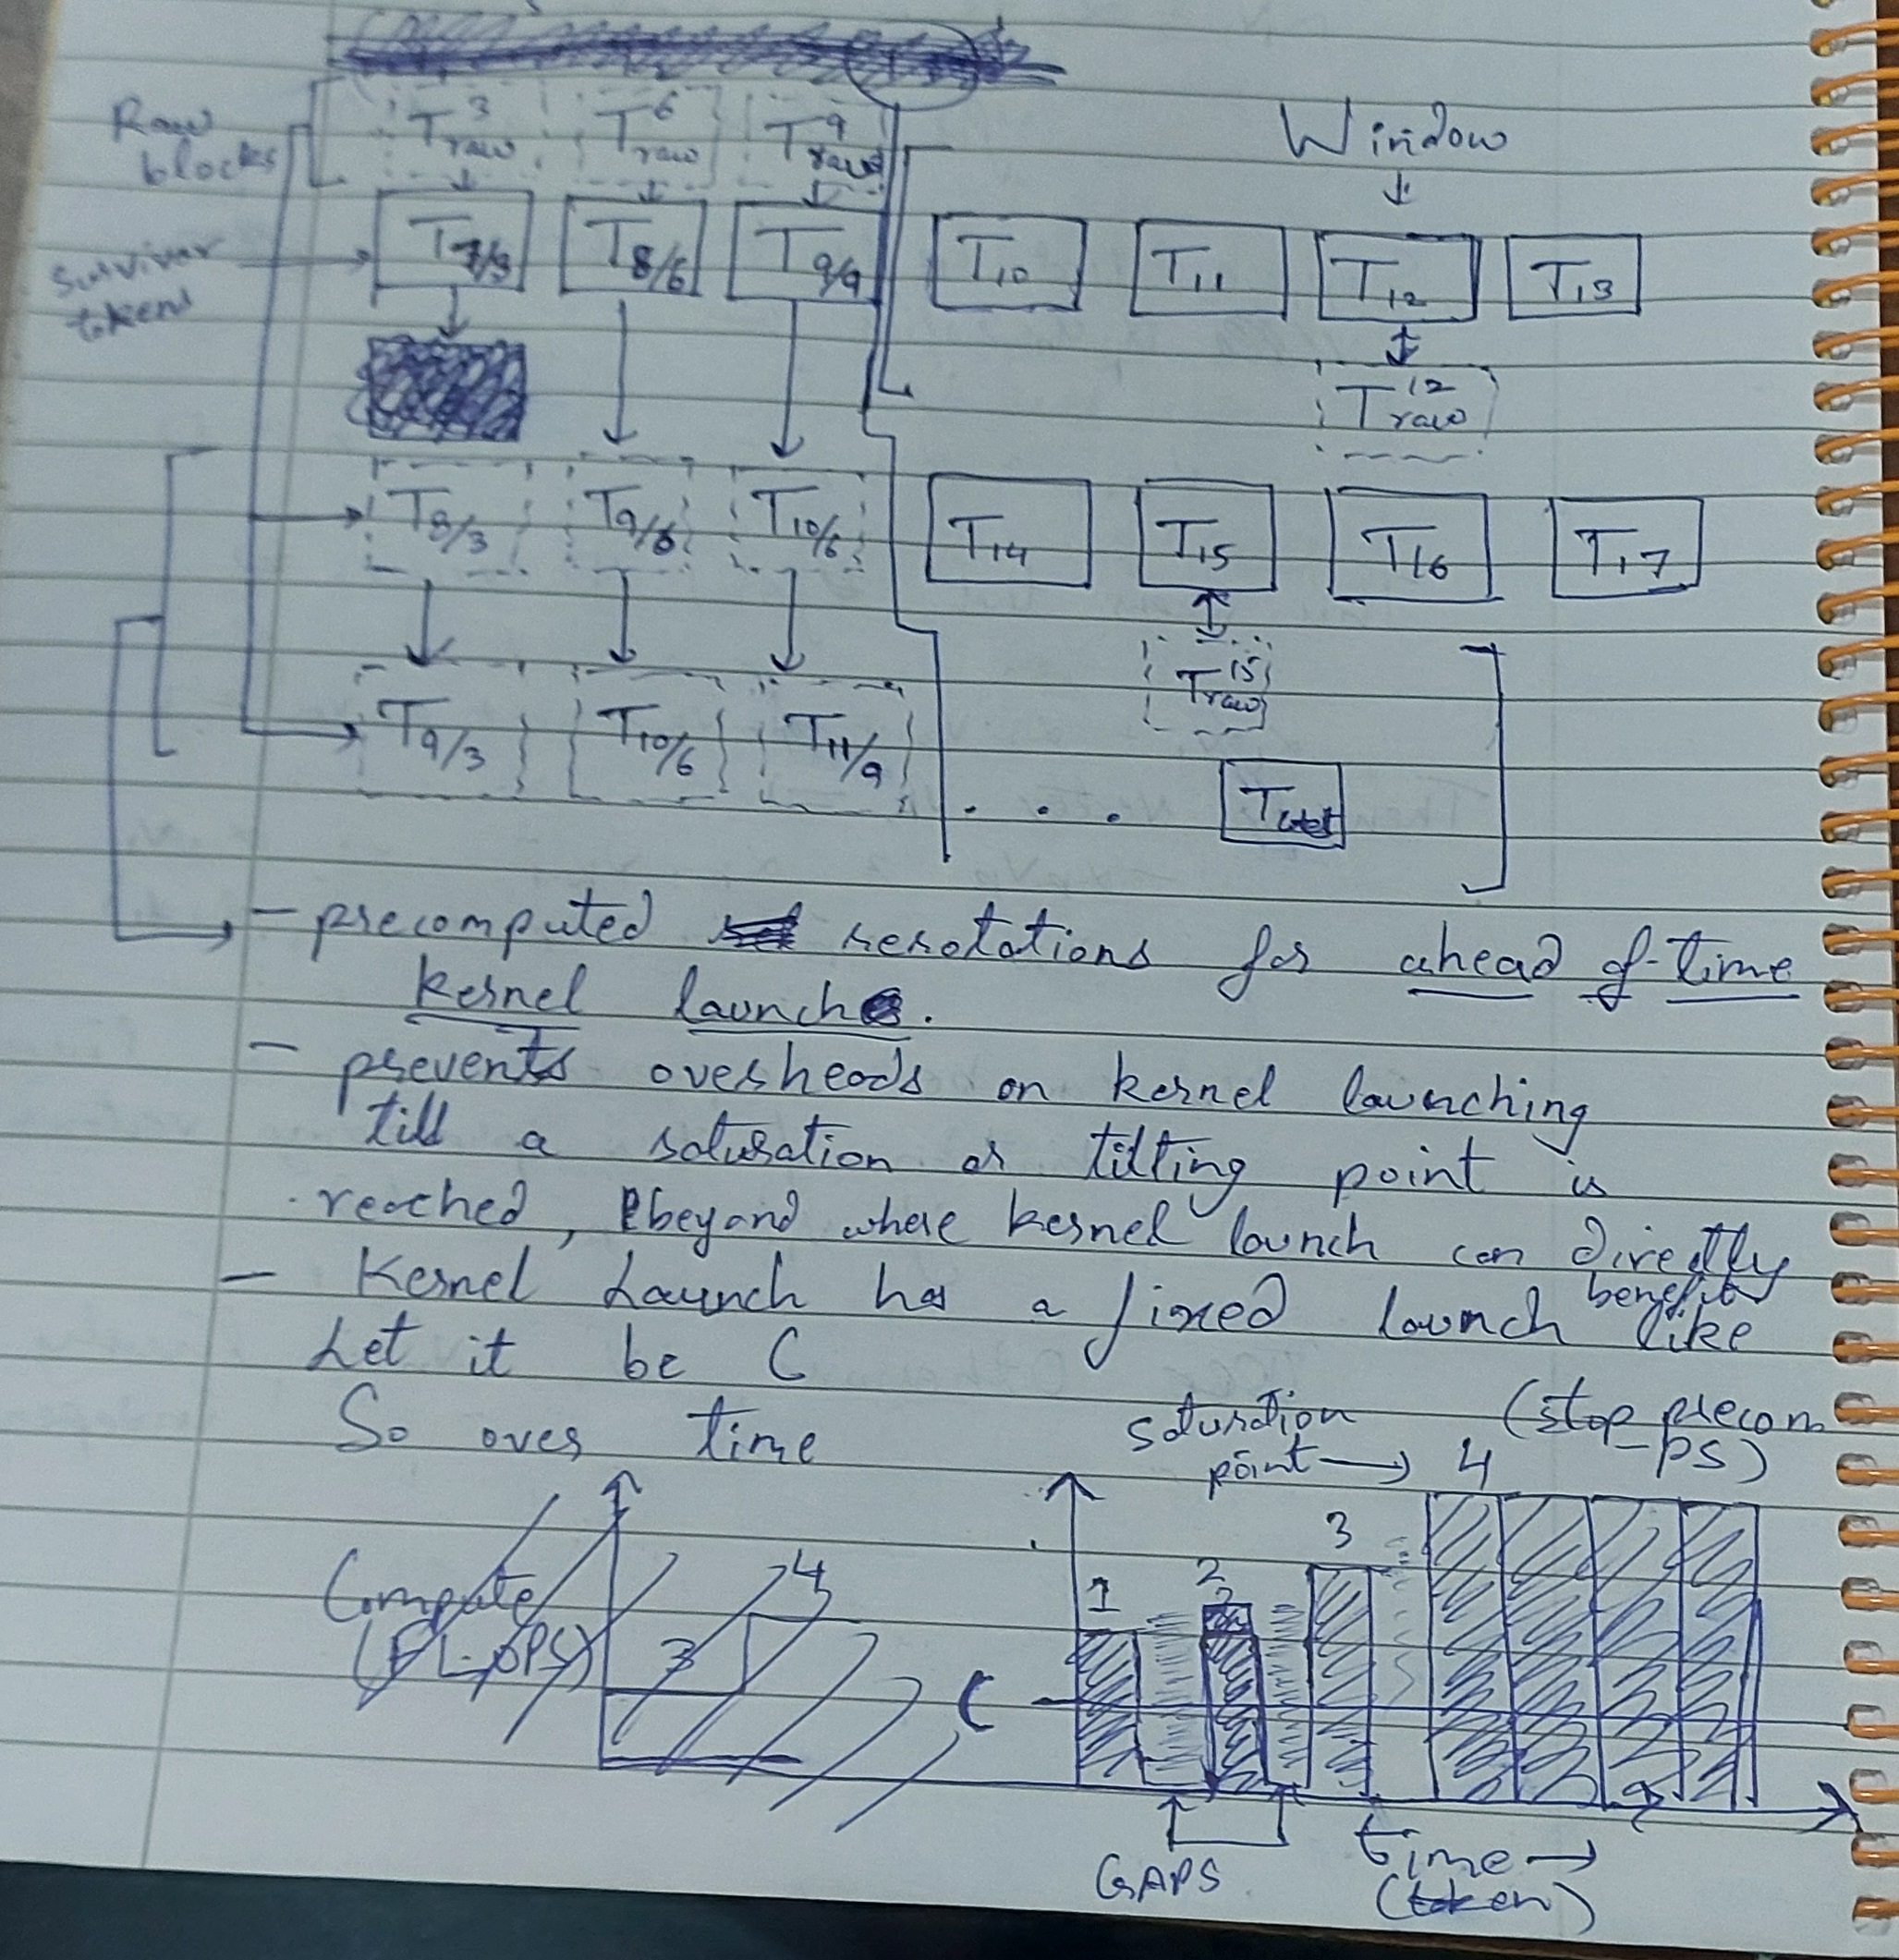 Raw blocks
T³raw T⁶raw T⁹raw
Window
Survivor tokens
T7/3 T8/6 T9/9 T10 T11 T12 T13
T¹²raw
T8/3 T9/6 T10/6 T14 T15 T16 T17
T¹⁵raw
T9/3 T10/6 T11/9 . . .
- precomputed rerotations for ahead of-time
kernel launch.
- prevents overheads on kernel launching
till a saturation or tilting point is
reached, beyond where kernel launch can directly
benefit
- Kernel Launch has a fixed launch like
Let it be C
So over time
saturation point → 4 (stop precom
-ps)
Compute (FLOPS)
3 4
1 2 3
C
GAPS
time →
(token)